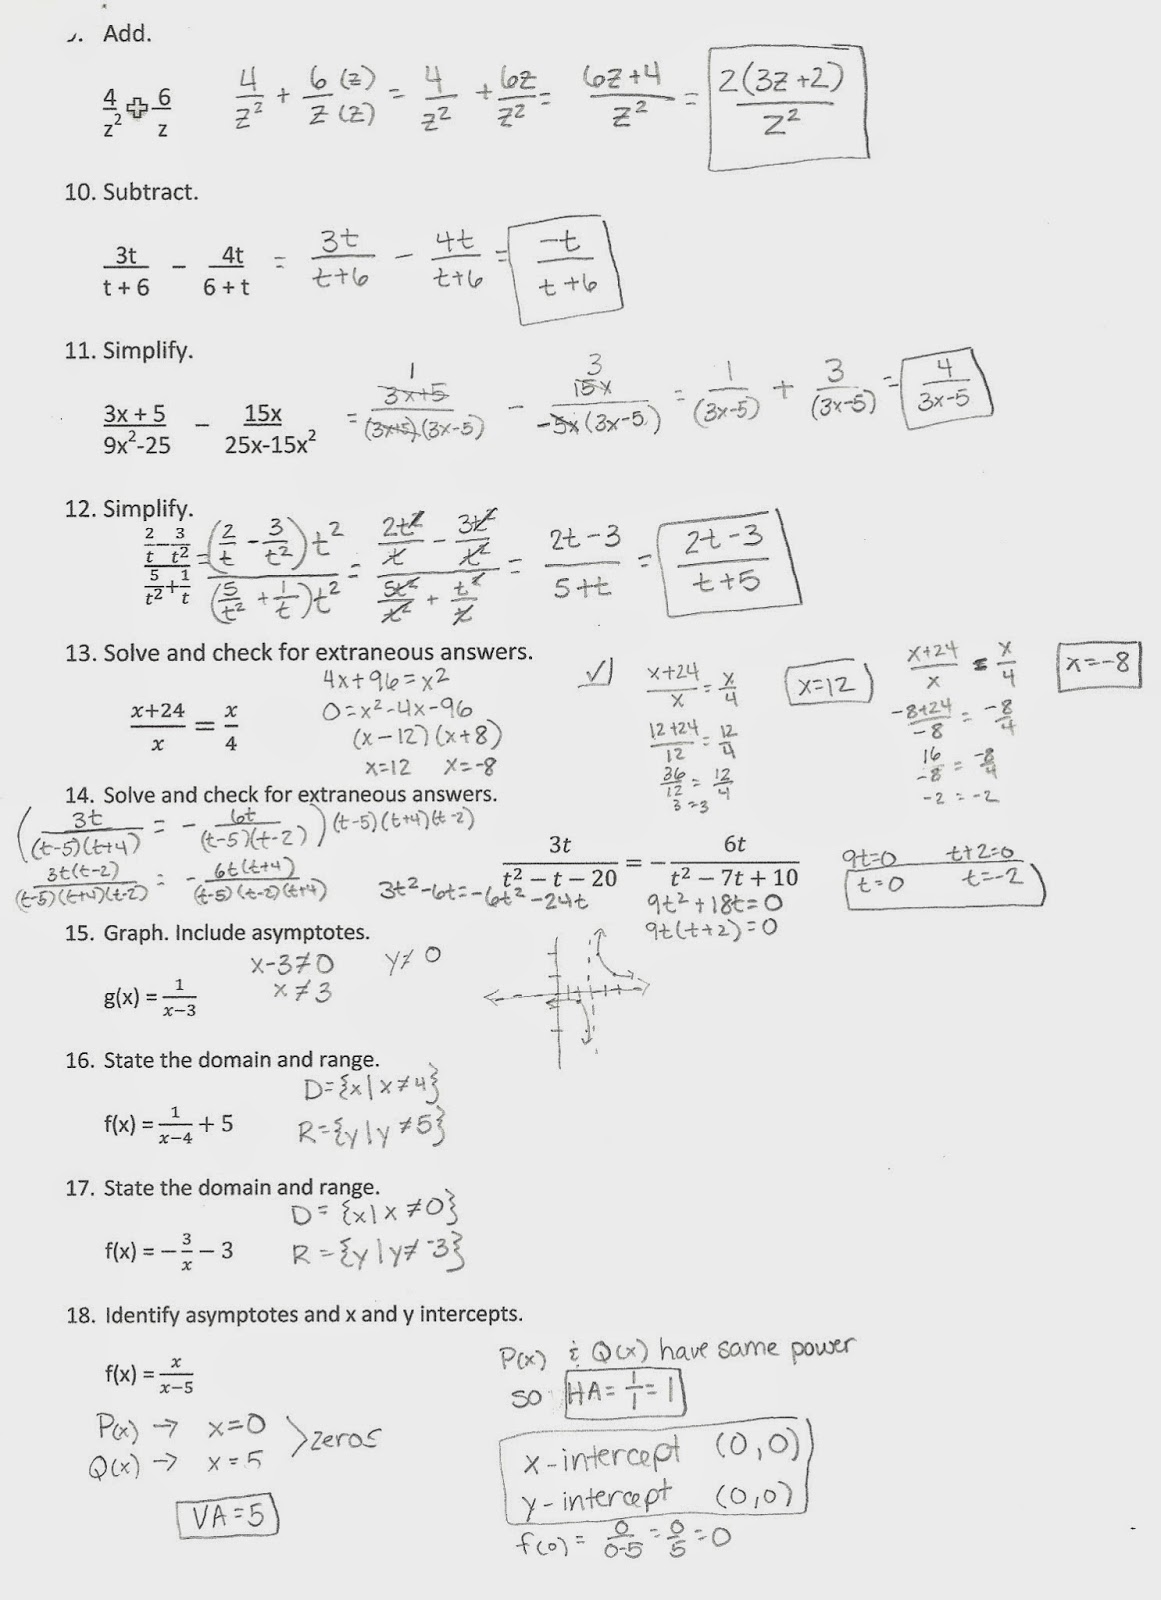 Add.
4/z² + 6/z   4/z² + 6(z)/z(z) = 4/z² + 6z/z² = 6z+4/z² = 2(3z+2)/z²
10. Subtract.
3t/t + 6 − 4t/6 + t = 3t/t+6 − 4t/t+6 = -t/t+6
11. Simplify.
3x + 5/9x²-25 − 15x/25x-15x² = 1 3x+5/(3x+5)(3x-5) − 3 15x/-5x(3x-5) = 1/(3x-5) + 3/(3x-5) = 4/3x-5
12. Simplify.
2/t − 3/t² / 5/t² + 1/t = (2/t - 3/t²)t² / (5/t² + 1/t)t² = 2t²/t - 3t²/t² / 5t²/t² + t²/t = 2t-3/5+t = 2t-3/t+5
13. Solve and check for extraneous answers.
x+24/x = x/4
4x+96=x²
0=x²-4x-96
(x-12)(x+8)
x=12 x=-8
✓ x+24/x = x/4 x=12
12+24/12 = 12/4
36/12 = 12/4
3=3
x+24/x = x/4 x=-8
-8+24/-8 = -8/4
16/-8 = -8/4
-2 = -2
14. Solve and check for extraneous answers.
(3t/(t-5)(t+4) = - 6t/(t-5)(t-2)) (t-5)(t+4)(t-2)
3t/t² − t − 20 = − 6t/t² − 7t + 10
3t(t-2)/(t-5)(t+4)(t-2) = - 6t(t+4)/(t-5)(t-2)(t+4)
3t²-6t=-6t²-24t
9t²+18t=0
9t(t+2)=0
9t=0 t+2=0
t=0 t=-2
15. Graph. Include asymptotes.
x-3≠0 y≠0
x≠3
g(x) = 1/x−3
16. State the domain and range.
D={x|x≠4}
f(x) = 1/x−4 + 5
R={y|y≠5}
17. State the domain and range.
D={x|x≠0}
f(x) = − 3/x − 3
R={y|y≠-3}
18. Identify asymptotes and x and y intercepts.
f(x) = x/x−5
P(x) & Q(x) have same power
so HA = 1/1 = 1
P(x) → x=0
Q(x) → x=5
> zeros
VA=5
x-intercept (0,0)
y-intercept (0,0)
f(0) = 0/0-5 = 0/5 = 0